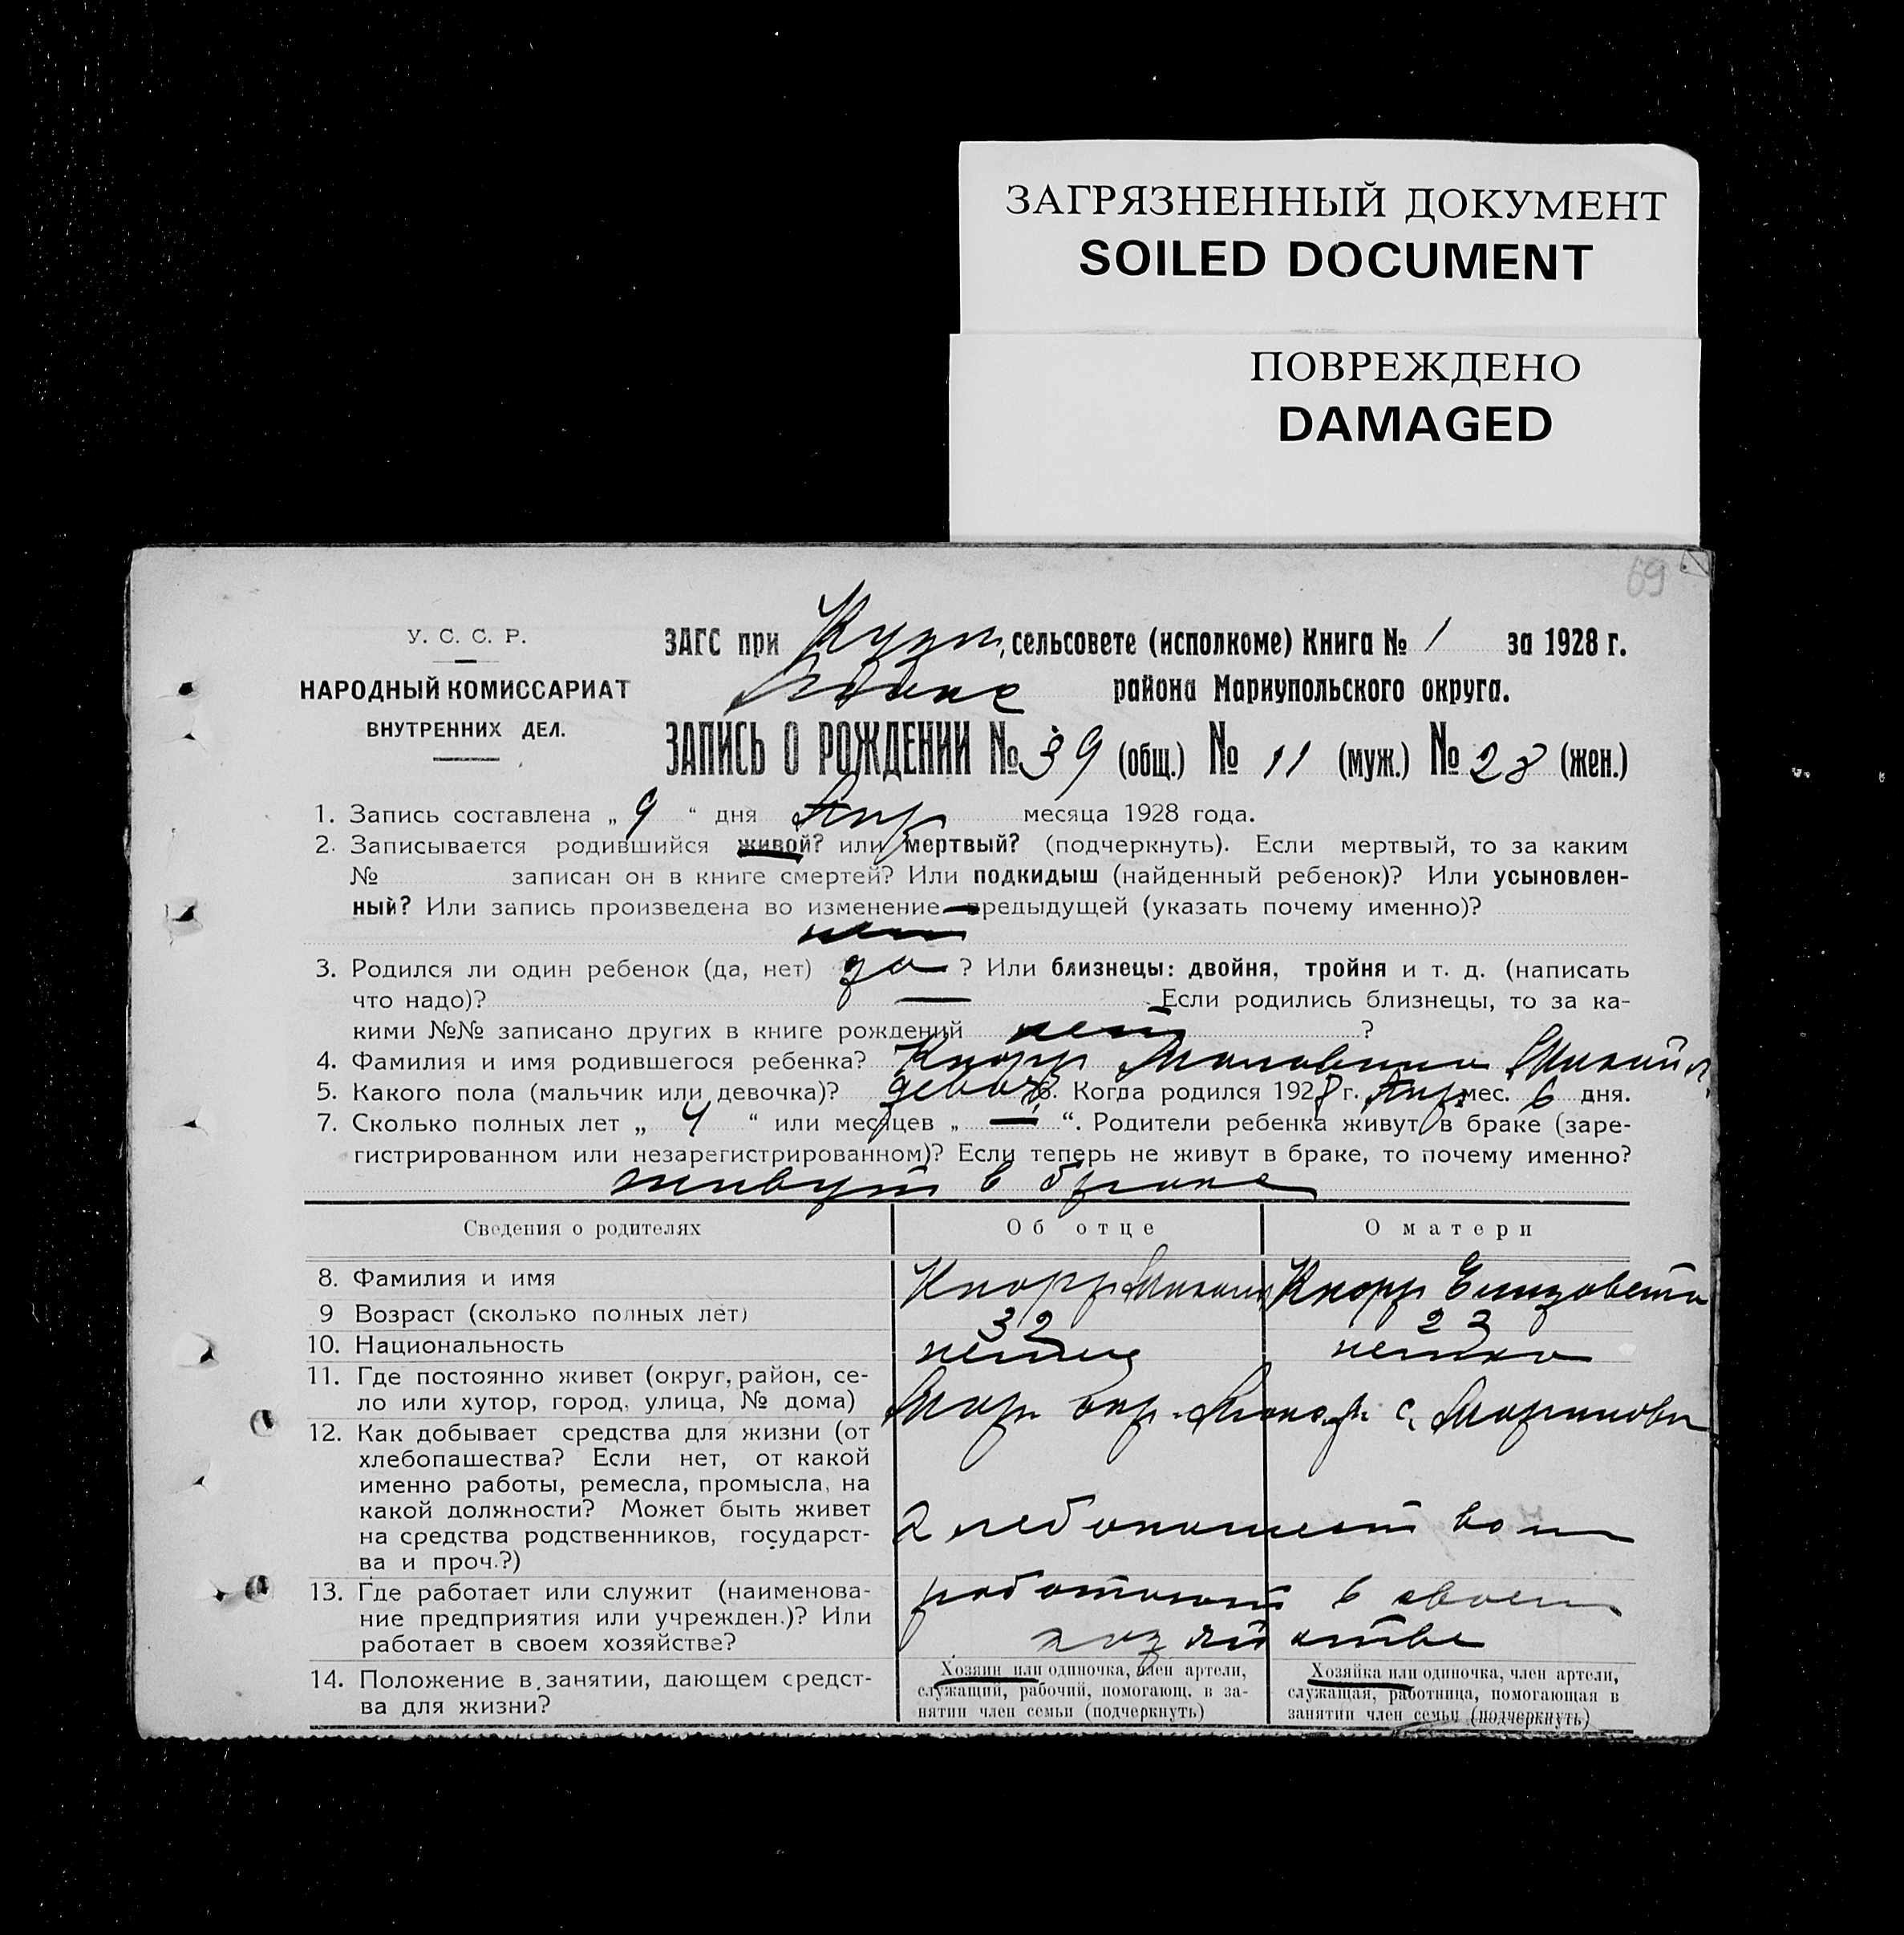 ЗАГРЯЗНЕННЫЙ ДОКУМЕНТ
SOILED DOCUMENT
ПОВРЕЖДЕНО
DAMAGED
69
У. С. С. Р.
НАРОДНЫЙ КОМИССАРИАТ
ВНУТРЕННИХ ДЕЛ.
ЗАГС при сельсовете (исполкоме) Книга № 1 за 1928 г.
района Мариупольского округа.
ЗАПИСЬ О РОЖДЕНИИ № 39 (общ.) № 11 (муж.) № 28 (жен.)
1. Запись составлена „ 9 “ дня Апр месяца 1928 года.
2. Записывается родившийся живой? или мертвый? (подчеркнуть). Если мертвый, то за каким
№ записан он в книге смертей? Или подкидыш (найденный ребенок)? Или усыновлен-
ный? Или запись произведена во изменение предыдущей (указать почему именно)?
нет
3. Родился ли один ребенок (да, нет) да ? Или близнецы: двойня, тройня и т. д. (написать
что надо)? — Если родились близнецы, то за ка-
кими №№ записано других в книге рождений нет ?
4. Фамилия и имя родившегося ребенка? Кнорр
5. Какого пола (мальчик или девочка)? девоч 6. Когда родился 1928 г. Апр мес. 6 дня.
7. Сколько полных лет „ 4 “ или месяцев „ — “. Родители ребенка живут в браке (заре-
гистрированном или незарегистрированном)? Если теперь не живут в браке, то почему именно?
живут в браке
Сведения о родителях Об отце О матери
8. Фамилия и имя Кнорр Кнорр Елизавета
9 Возраст (сколько полных лет) 32 23
10. Национальность немец немка
11. Где постоянно живет (округ, район, се-
ло или хутор, город, улица, № дома) Мар окр. с.
12. Как добывает средства для жизни (от
хлебопашества? Если нет, от какой
именно работы, ремесла, промысла, на
какой должности? Может быть живет
на средства родственников, государст-
ва и проч.?)
хлебопашеством
13. Где работает или служит (наименова-
ние предприятия или учрежден.)? Или
работает в своем хозяйстве?
работают в своем
хозяйстве
14. Положение в занятии, дающем средст-
ва для жизни?
Хозяин или одиночка, член артели,
служащий, рабочий, помогающ. в за-
нятии член семьи (подчеркнуть)
Хозяйка или одиночка, член артели,
служащая, работница, помогающая в
занятии член семьи (подчеркнуть)